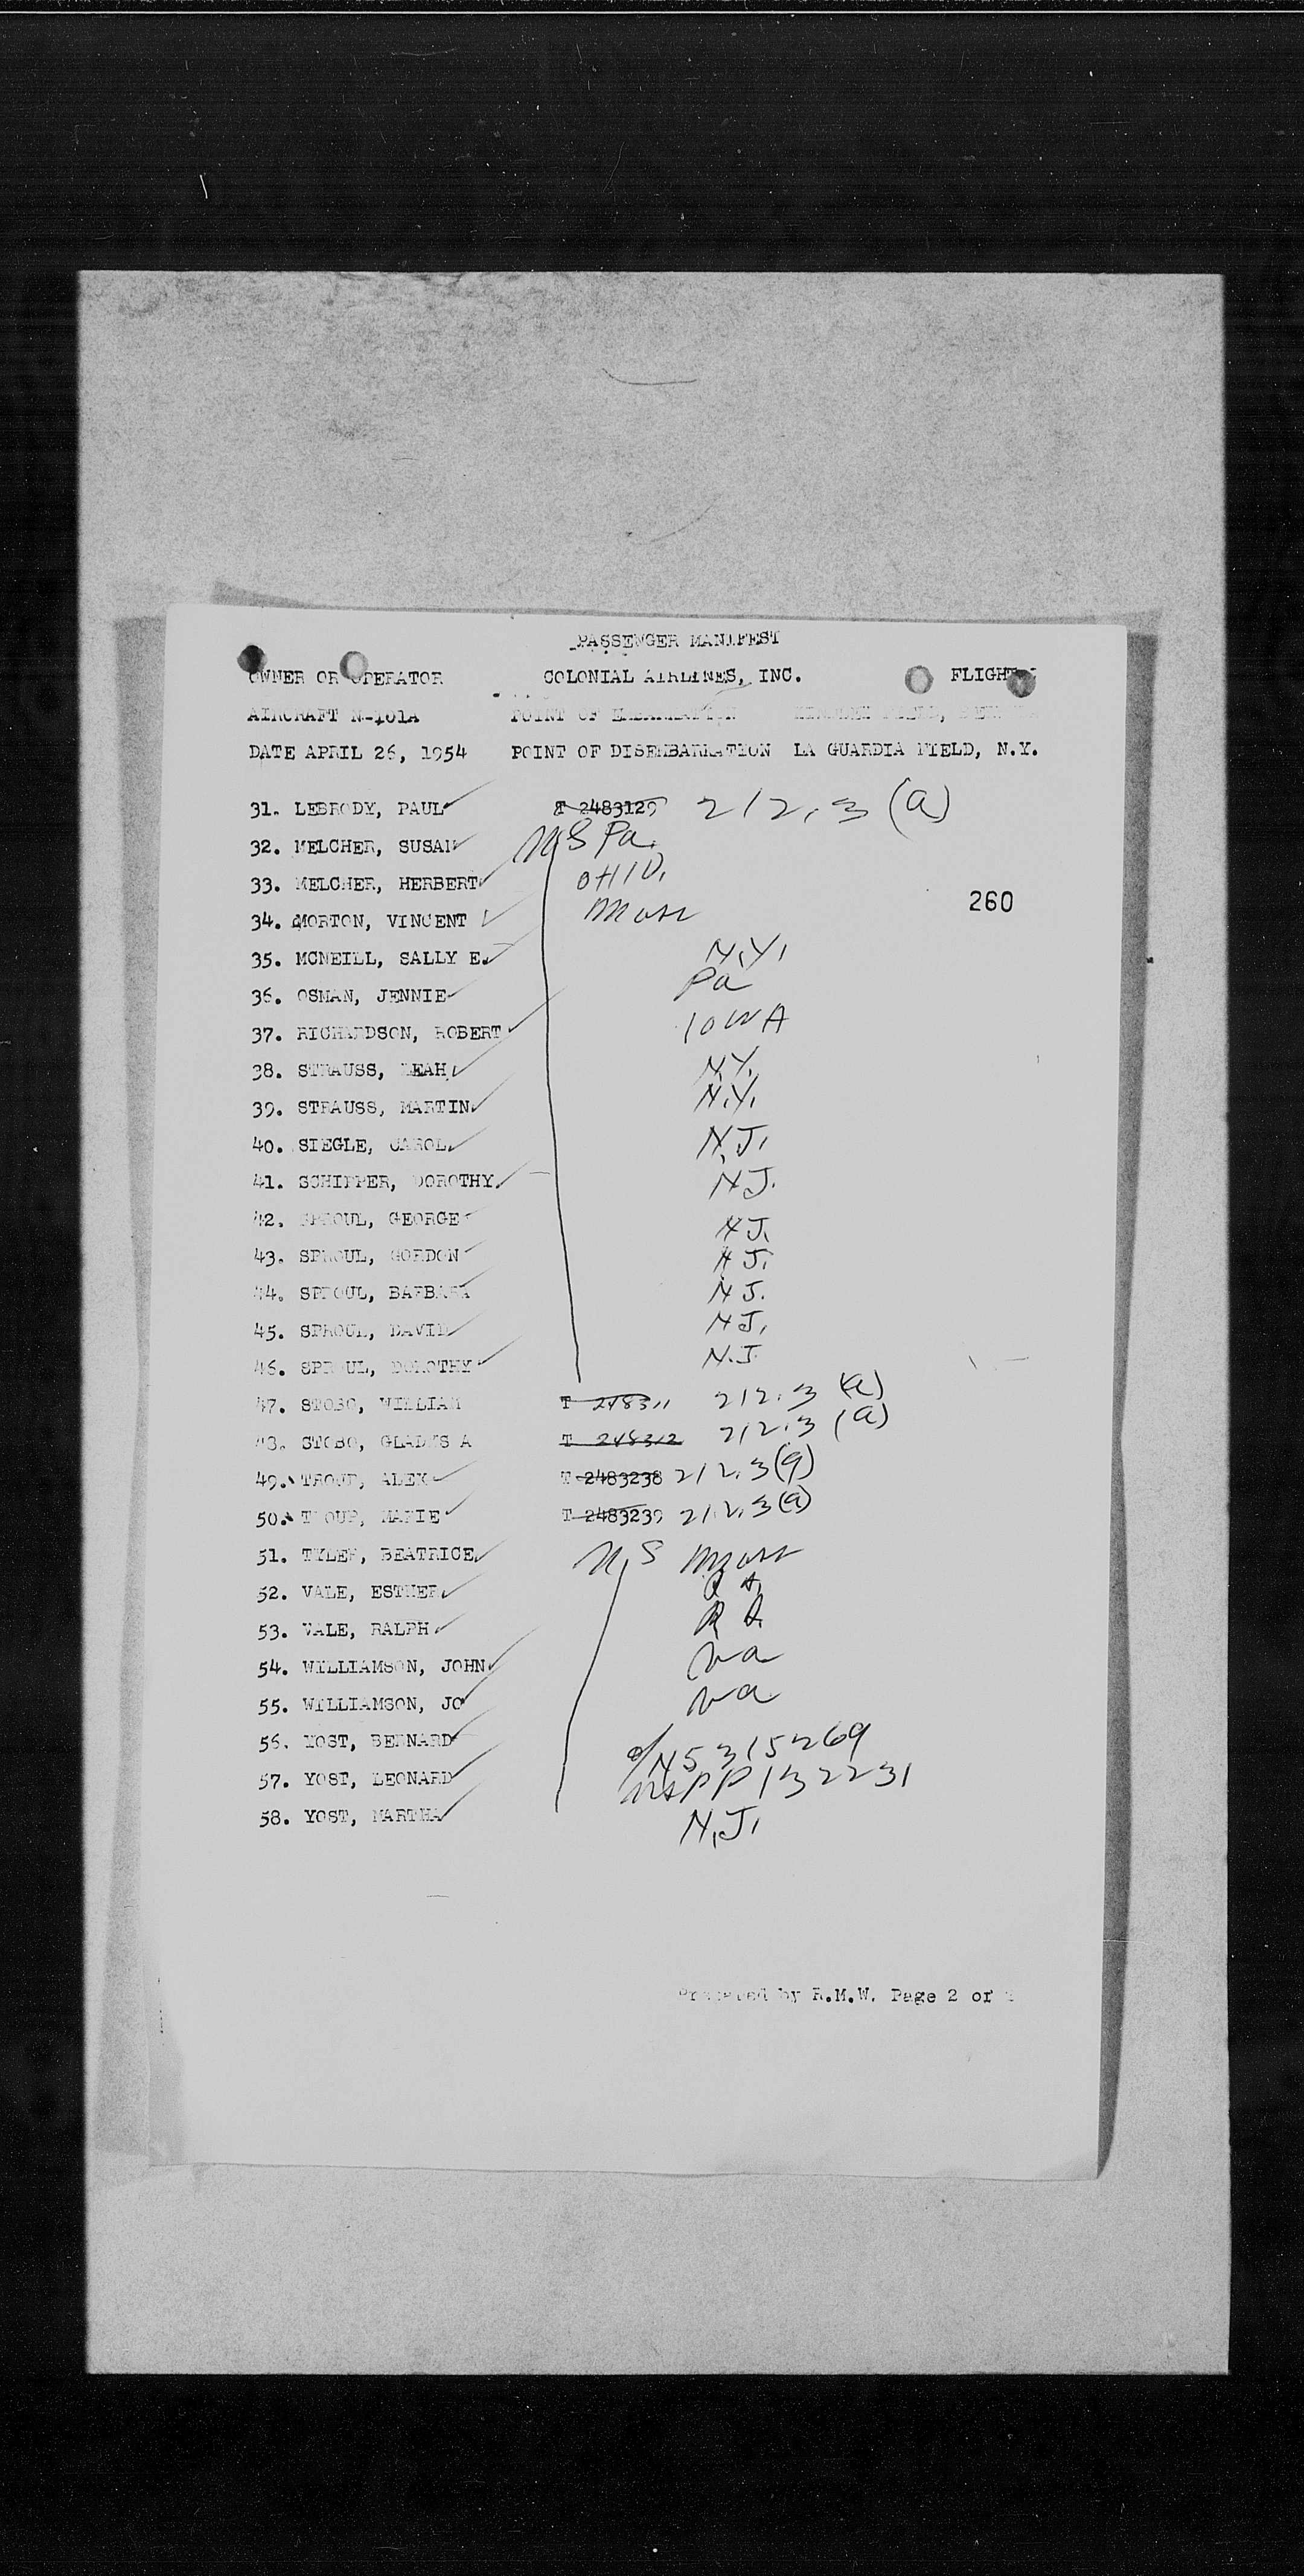 PASSENGER MANIFEST
OWNER OR OPERATOR COLONIAL AIRLINES, INC. FLIGHT
AIRCRAFT N-101A POINT OF EMBARKATION FIELD,
DATE APRIL 26, 1954 POINT OF DISEMBARKATION LA GUARDIA FIELD, N.Y.
31. LEBRODY, PAUL T 2483129 212.3 (a)
32. MELCHER, SUSAN US Pa.
33. MELCHER, HERBERT OHIO.
260
34. MORTON, VINCENT Mass
35. MCNEILL, SALLY E. N.Y.
36. OSMAN, JENNIE Pa
37. RICHARDSON, ROBERT IOWA
38. STRAUSS, LEAH N.Y.
39. STRAUSS, MARTIN N.Y.
40. SIEGLE, CAROL N.J.
41. SCHIPPER, DOROTHY NJ.
42. SPROUL, GEORGE NJ.
43. SPROUL, GORDON NJ.
44. SPROUL, BARBARA NJ.
45. SPROUL, DAVID NJ.
46. SPROUL, DOROTHY N.J.
47. STOBO, WILLIAM T 248311 212.3 (a)
48. STOBO, GLADYS A T 248312 212.3 (a)
49. TROUP, ALEX T 2483238 212.3 (a)
50. TROUP, MARIE T 2483239 212.3 (a)
51. TYLER, BEATRICE U.S Mass
52. VALE, ESTHER
53. VALE, RALPH
54. WILLIAMSON, JOHN Va
55. WILLIAMSON, JO Va
56. YOST, BERNARD N5315269
57. YOST, LEONARD USPP 132231
58. YOST, MARTHA N.J.
Prepared by R.M.W. Page 2 of